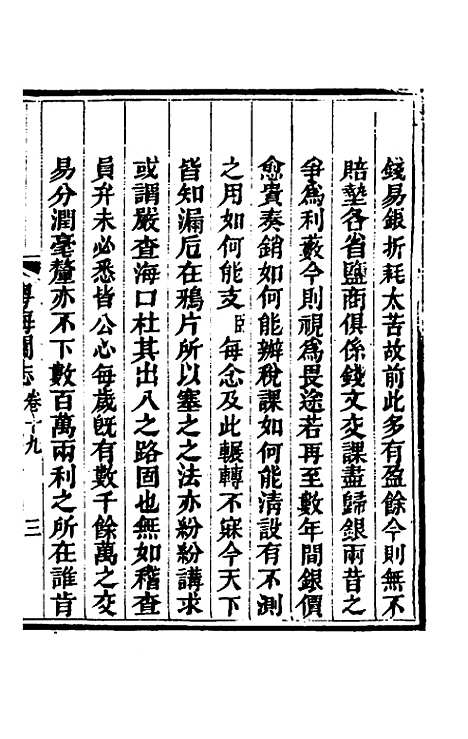 錢易銀折耗太苦故前此多有盈餘今則無不
賠墊各省鹽商俱係錢文交課盡歸銀兩昔之
爭爲利藪今則視爲畏途若再至數年間銀價
愈貴奏銷如何能辦稅課如何能清設有不測
之用如何能支臣每念及此輾轉不寐今天下
皆知漏巵在鴉片所以塞之之法亦紛紛講求
或謂嚴查海口杜其出入之路固也無如稽查
員弁未必悉皆公心每歲旣有數千餘萬之交
易分潤毫釐亦不下數百萬兩利之所在誰肯
粵海關志 卷十九 三